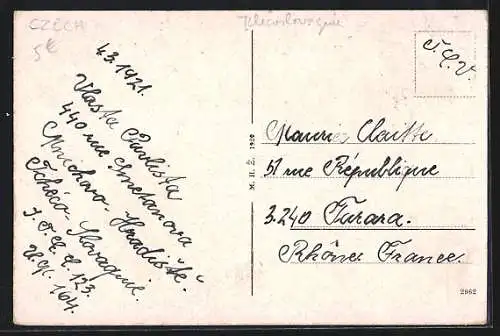 CZECH
Tchécoslovaquie
T. C. V.
4.3.1921.
Vlasta Pavlista
440 rue Smetanova
Mnichovo-Hradiště.
Tchéco-Slovaquie.
123.
164.
M. H. Ž. 1920
Maurice Claitte
51 rue République
3.240 Tarara.
Rhône France.
2862